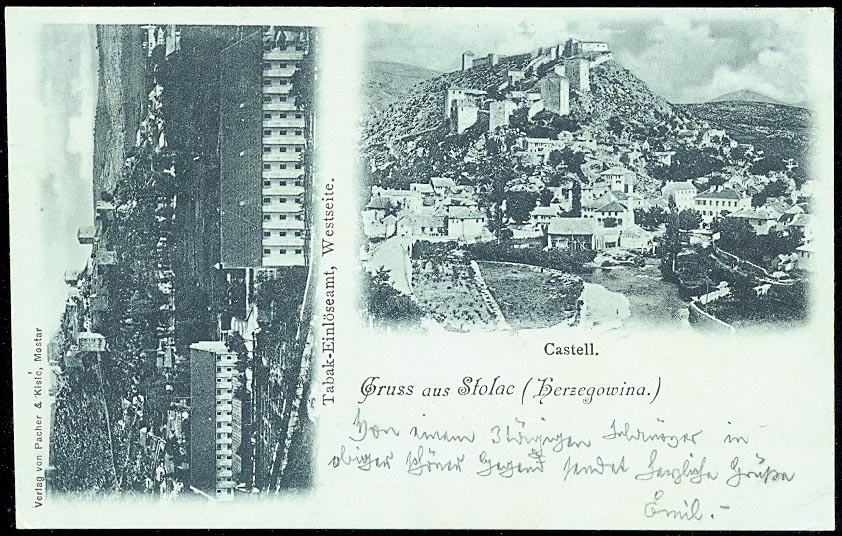 Verlag von Pacher & Kisić, Mostar
Tabak-Einlöseamt, Westseite.
Castell.
Gruss aus Stolac (Herzegowina.)
Von einem 3tägigen in
obiger schöner Gegend sendet herzliche Grüße
Emil.-